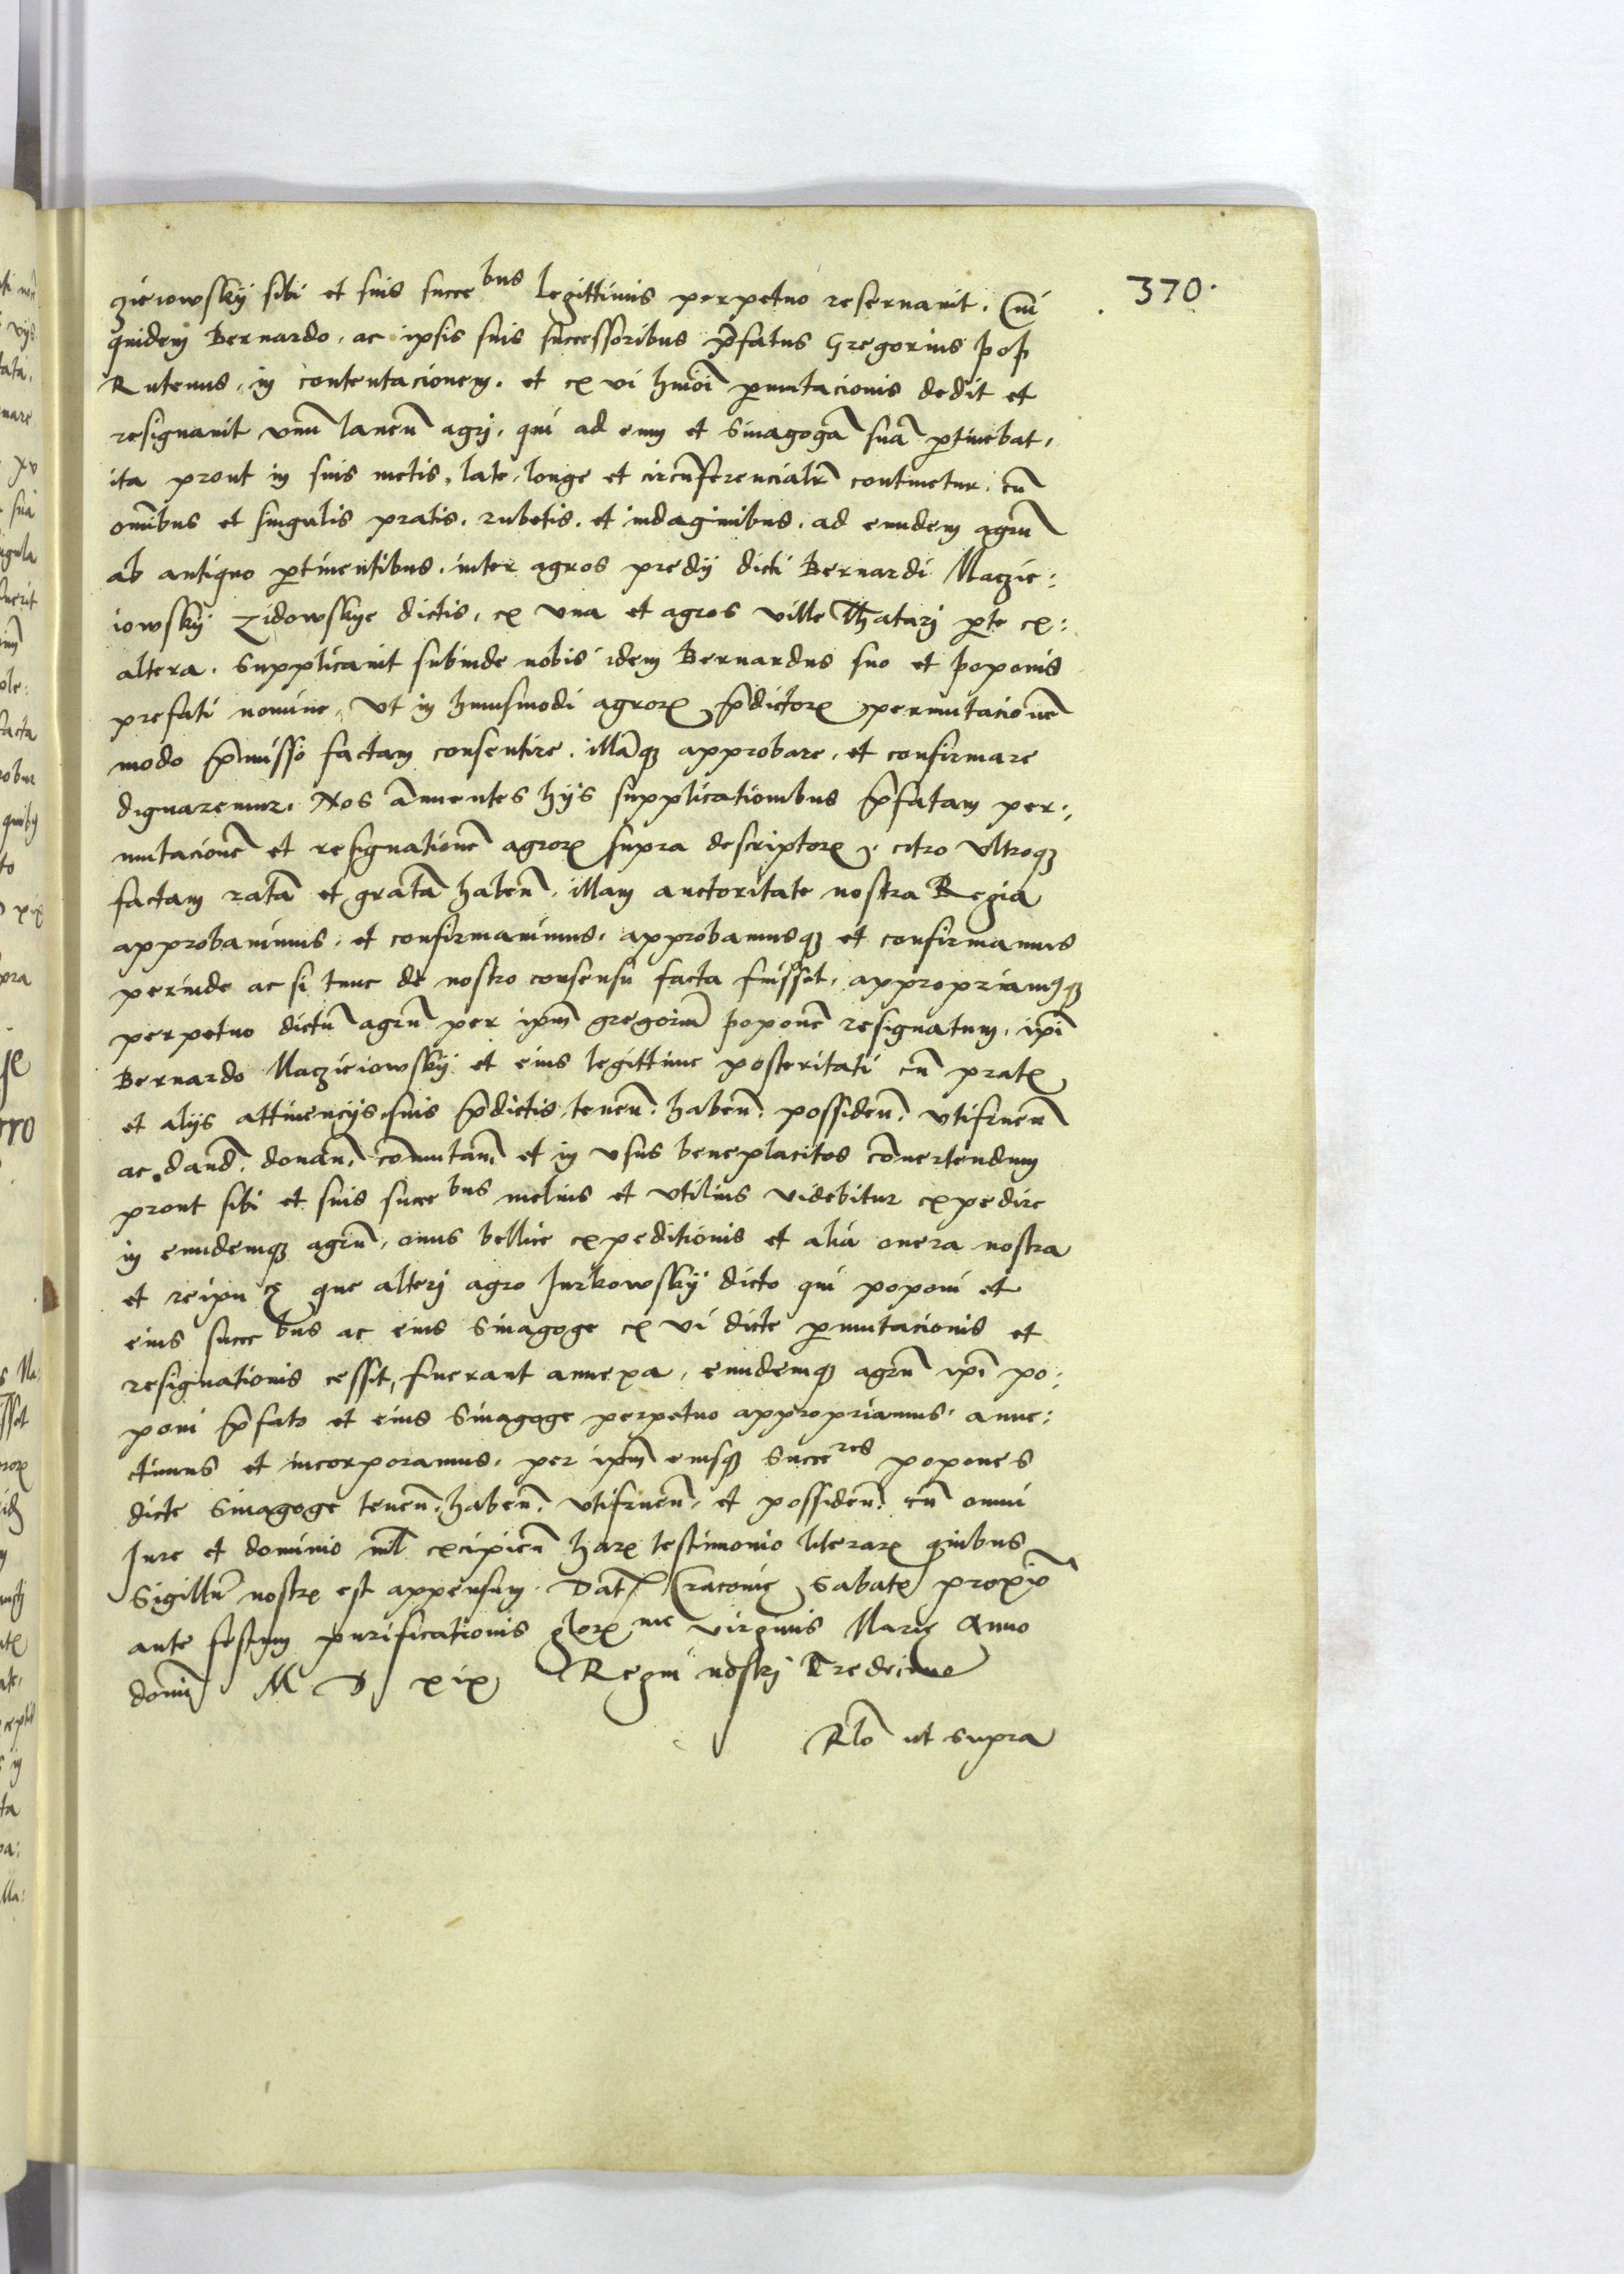 370.
zieiowskÿ sibi et suis succe^bus legittimis perpetuo reseruauit. Cui
quidem Bernardo, ac ipsis suis successoribus p̄fatus Gregorius pop
Rutenus, in contentacionem, et ex vi hmōi ꝑmutacionis dedit et
resignauit vnū laneū agrj, qui ad eum et Sinagogā suā ꝑtinebat,
ita prout in suis metis, late, longe et circūferencialr̄ continetur, cū
omībus et singulis pratis, rubetis, et indaginibus, ad eundem agrū
ab antiquo ꝑtinentibus, inter agros predÿ dicti Bernardi Maczie:
iowskÿ Zidowskye dictis, ex vna et agros ville Thatarj ꝑte ex:
altera. Supplicauit subinde nobis idem Bernardus suo et poponis
prefati nomine, vt in huiusmodi agroꝝ p̄dictoꝝ permutacionē
modo p̄misso factam consentire, illāqꝫ approbare, et confirmare
dignaremur. Nos ānuentes hÿs supplicationibus p̄fatam per:
mutacionē et resignationē agroꝝ supra descriptoꝝ, citro vltroqꝫ
factam ratā et gratā habeñ. illam auctoritate nostra Regia
approbauimus, et confirmauimus, approbamusqꝫ et confirmamus
perinde ac si tunc de nostro consensu facta fuisset, appropriamꝰqꝫ
perpetuo dictū agrū per ipm̄ gregoriū poponē resignatum, ipī
Bernardo Maczieiowskÿ et eius legittime posteritati cū pratꝭ
et alÿs attinencÿs suis p̄dictis, teneñ. habeñ. possideñ. vtifrueñ
ac dand̄. donañ. cōmutañ et in vsus beneplacitos cōuertendum
prout sibi et suis succe^bus melius et vtilius videbitur expedire
in eundemqꝫ agrū, onus bellice expeditionis et alia onera nostra
et reipu^ce que alterj agro Jurkowskÿ dicto qui poponi et
eius succe^bus ac eius Sinagoge ex vi dicte ꝑmutacionis et
resignationis cessit, fuerant annexa, eundemqꝫ agrū ipī po:
poni p̄fato et eius Sinagoge perpetuo appropriamus, anne:
ctimus et incorporamus, per ipm̄ eiusqꝫ Succe^res popones
dicte Sinagoge teneñ. habeñ. vtifrueñ. et possideñ. cū omni
Jure et dominio nil̄ excipieñ haꝝ testimonio literaꝝ quibus
Sigillū nostrꝝ est appensum. Dat̄ Cracouie Sabatꝭ proxīo
ante festum purificationis glorꝭ^me virginis Marie Anno
domī M D xix Regni nostrj Tredecimo
Rlō ut supra